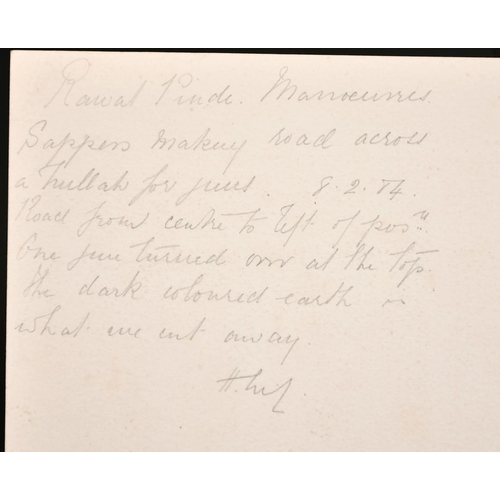 Rawal Pindi. Manœuvres
Sappers making road across
a nullah for guns. 8.2.84.
Road from centre to left of posⁿ
One gun turned over at the top.
the dark coloured earth is
what we cut away.